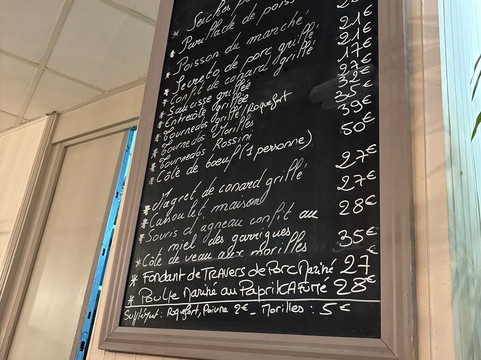 * Seiches
Parillade de poiss
Poisson du marché 21€
* Secreto de porc grillé 21€
* Confit de canard grillé 21€
* Saucisse grillée 17€
* Entrecôte grillée 27€
* Tournedos grillé/Roquefort 32€
* Tournedos Morilles 35€
* Tournedos Rossini 39€
* Côte de boeuf (1 personne) 50€
* Magret de canard grillé 27€
* Cassoulet maison 27€
* Souris d'agneau confit au 28€
miel des garrigues
* Côte de veau aux morilles 35€
* Fondant de TRAVERS de PORC Mariné 27
* Poulpe Mariné au PAPRIKA FUMÉ 28€
Supplément: Roquefort, Poivre 2€ - Morilles: 5€